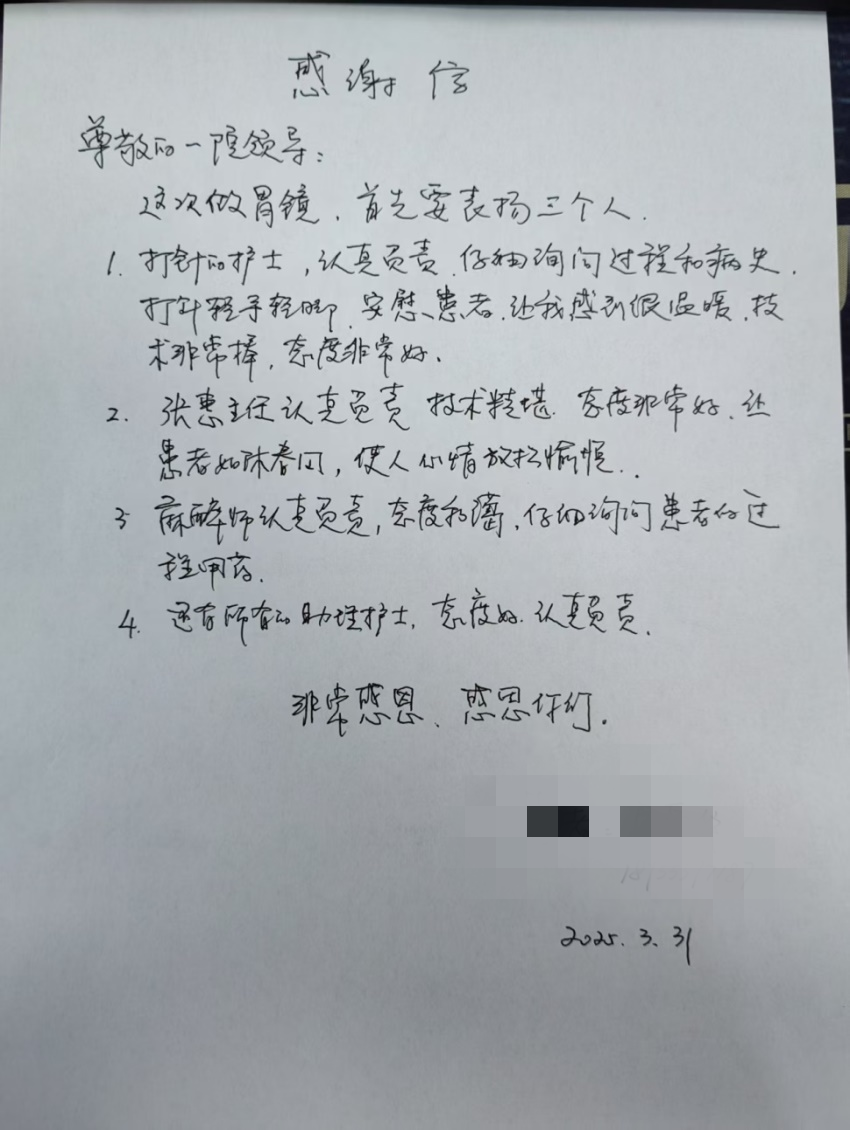 感谢信
尊敬的一院领导：
这次做胃镜，首先要表扬三个人.
1. 打针的护士，认真负责.仔细询问过程和病史.
打针轻手轻脚.安慰患者.让我感到很温暖.技
术非常棒，态度非常好.
2. 张惠主任认真负责 技术精堪.态度非常好.让
患者如沐春风，使人心情放松愉悦..
3 麻醉师认真负责，态度和蔼，仔细询问患者的过
程用药.
4. 还有所有的助理护士.态度好.认真负责.
非常感恩、感恩你们.
2025.3.31